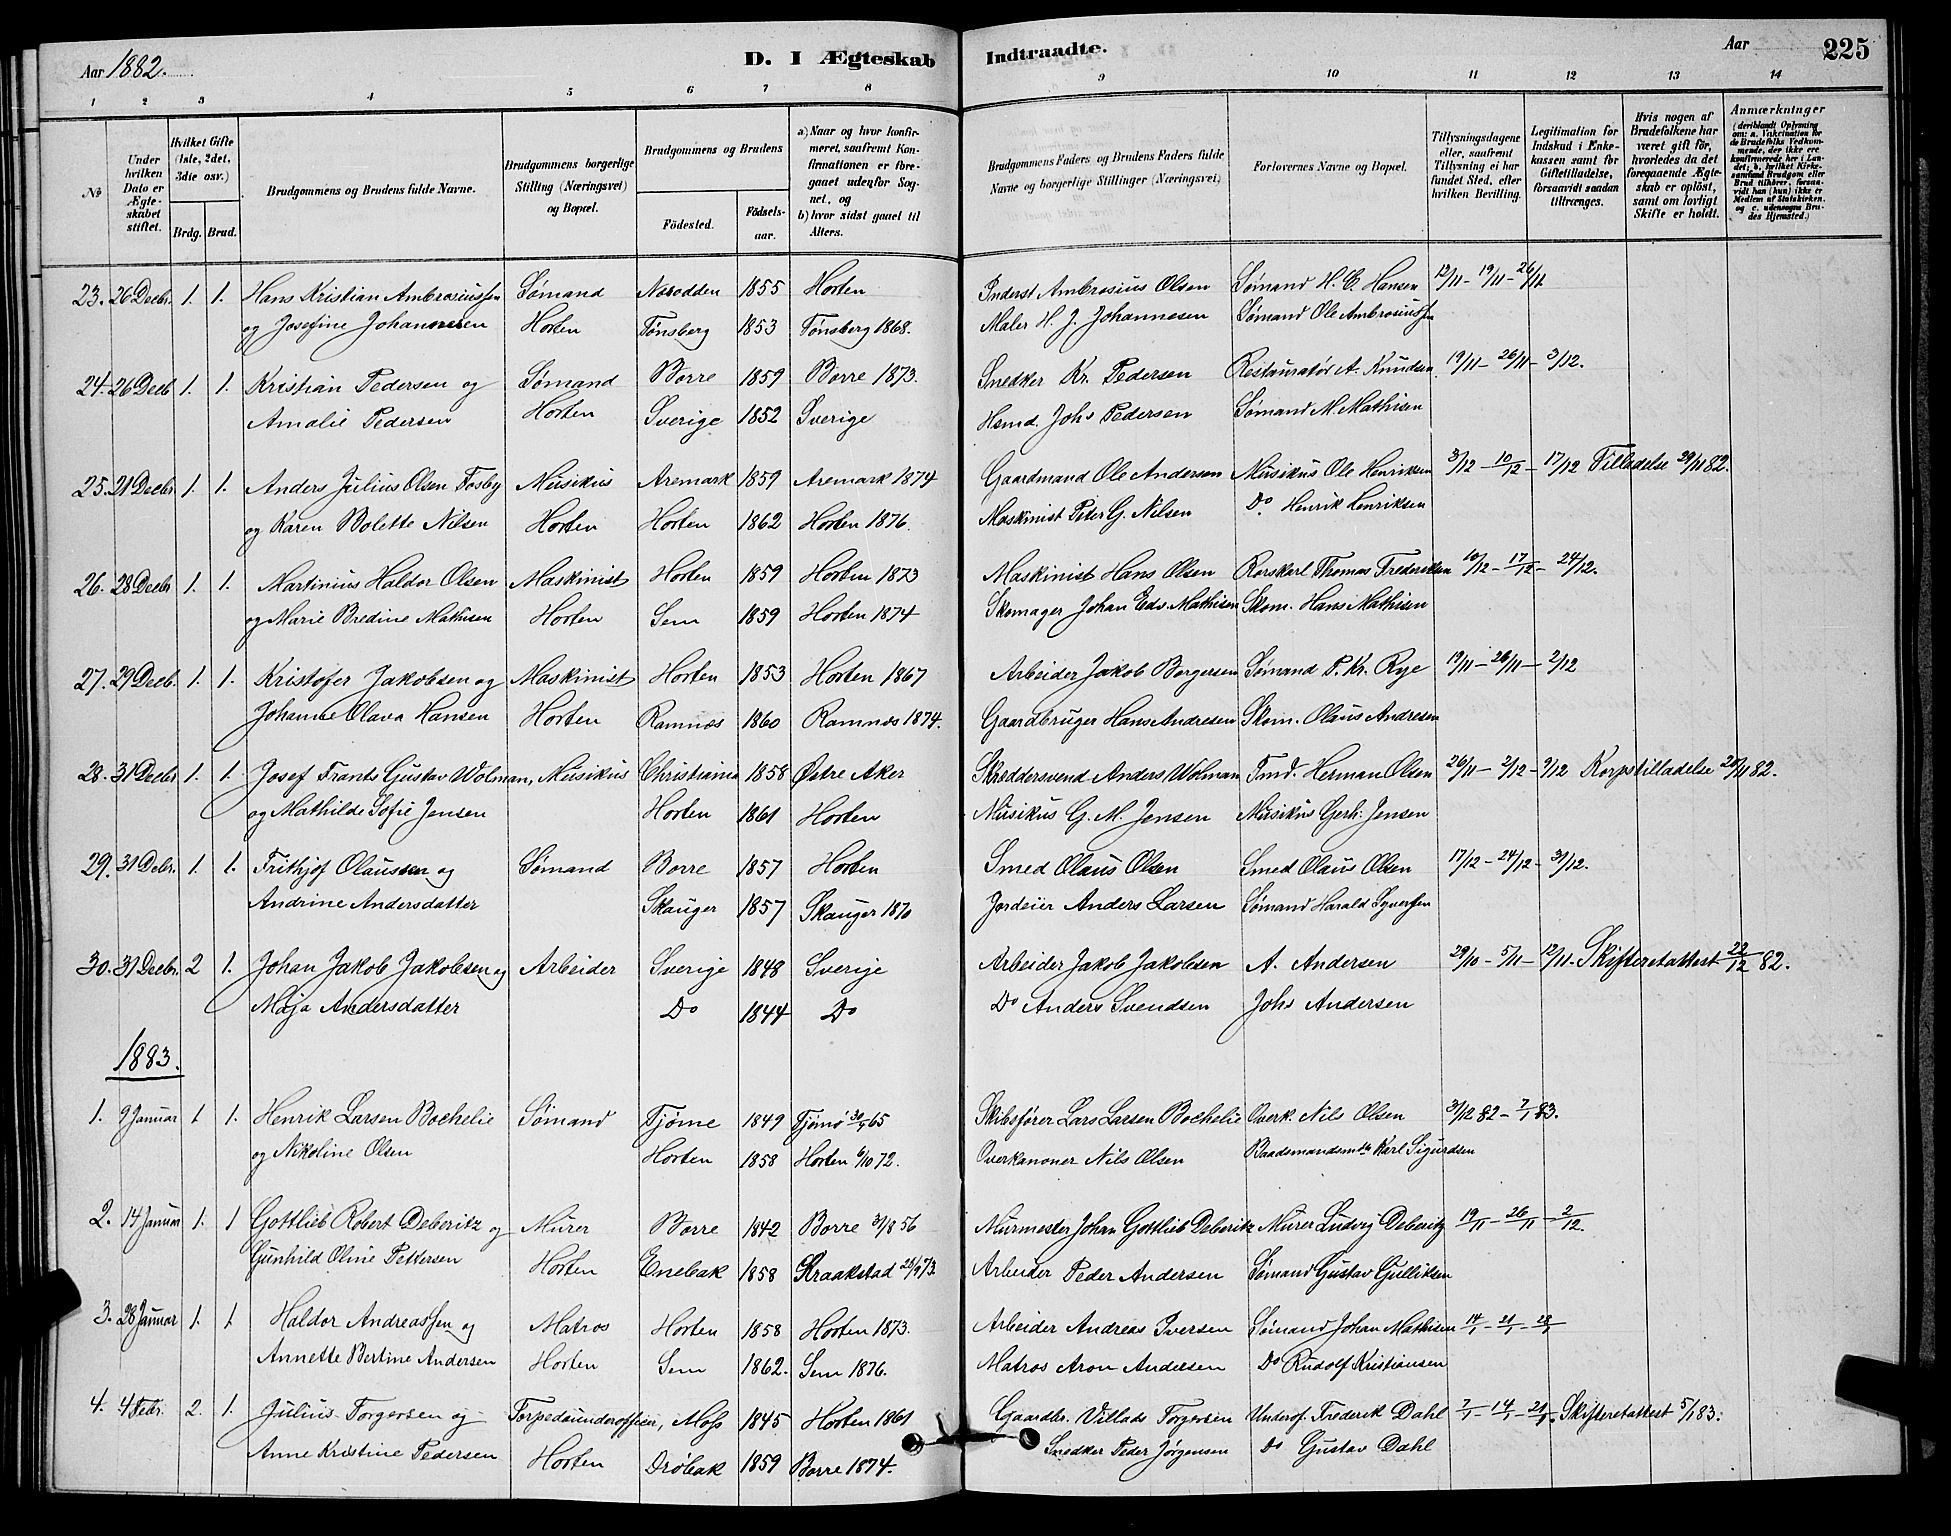 Aar 1882.
D. I Ægteskab
Indtraadte.
Aar
225
1 2 3 4 5 6 7 8 9 10 11 12 13 14
No
Under hvilken Dato er Ægteskabet stiftet.
Hvilket Gifte (1ste, 2det, 3die osv.)
Brdg. Brud.
Brudgommens og Brudens fulde Navne.
Brudgommens borgerlige Stilling (Næringsvei) og Bopæl.
Brudgommens og Brudens
Födested.
Födsels-aar.
a) Naar og hvor konfirmeret, saafremt Konfirmationen er foregaaet udenfor Sognet, og
b) hvor sidst gaaet til Alters.
Brudgommens Faders og Brudens Faders fulde Navne og borgerlige Stillinger (Næringsvei)
Forlovernes Navne og Bopæl.
Tillysningsdagene eller, saafremt Tillysning ei har fundet Sted, efter hvilken Bevilling.
Legitimation for Indskud i Enkekassen samt for Giftetilladelse, forsaavidt saadan tiltrænges.
Hvis nogen af Brudefolkene har været gift för, hvorledes da det foregaaende Ægteskab er oplöst, samt om lovligt Skifte er holdt.
Anmærkninger (deriblandt Oplysning om: a. Vakcination for de Brudefolks Vedkommende, der ikke ere konfirmerede her i Landet, b. hvilket Kirkesamfund Brudgom eller Brud tilhörer, forsaavidt han (hun) ikke er Medlem af Statskirken, og c. udensogns Brudes Hjemsted.)
23. 26 Decbr. 1. 1. Hans Kristian Ambrosiussen Sømand Notodden 1855 Horten Inderst Ambrosius Olsen Sømand H. C. Hansen 12/11 - 19/11 - 26/11
og Josefine Johannesen Horten Tønsberg 1853 Tønsberg 1868. Maler H. J. Johannesen Sømand Ole Ambrosiussen
24. 26 Decb 1. 1. Kristian Pedersen og Sømand Borre 1859 Borre 1873. Snedker Kr. Pedersen Restauratør A. Knudsen 19/11 - 26/11 - 3/12.
Amalie Pedersen Horten Sverige 1852 Sverige Hsmd. Johs Pedersen Sømand M. Mathisen
25. 21 Decbr. 1. 1. Anders Julius Olsen Fosby Musikus Aremark 1859 Aremark 1874 Gaardmand Ole Andersen Musikus Ole Henriksen 3/12 - 10/12 - 17/12 Tilladelse 29/11 82.
og Karen Bolette Nilsen Horten Horten 1862 Horten 1876. Maskinist Peter G. Nilsen Do. Henrik Henriksen
26. 28 Decbr 1. 1. Martinius Haldor Olsen Maskinist Horten 1859 Horten 1873 Maskinist Hans Olsen Rorskarl Thomas Frederiksen 10/12 - 17/12 - 24/12.
og Marie Bredine Mathisen Horten Sem 1859 Horten 1874 Skomager Johan Edv. Mathisen Skom. Hans Mathisen
27. 29 Decb. 1. 1. Kristofer Jakobsen og Maskinist Horten 1853 Horten 1867 Arbeider Jakob Borgersen Sømand P. Kr. Rye 19/11 - 26/11 - 2/12
Johanne Olava Hansen Horten Ramnæs 1860 Ramnæs 1874. Gaardbruger Hans Andresen Skom. Olaus Andresen
28. 31 Decbr 1. 1. Josef Frants Gustav Wolman, Musikus Christiania 1858 Østre Aker Skræddersvend Anders Wolman Tmd. Herman Olsen 26/11 - 2/12 - 9/12 Korpstilladelse 28/11 82.
og Mathilde Sofie Jensen Horten 1861 Horten Musikus G. M. Jensen Musikus Gerh: Jensen
29. 31 Debr. 1. 1. Frithjof Olaussen og Sømand Borre 1857 Horten Smed Olaus Olsen Smed Olaus Olsen 17/12 - 24/12 - 31/12.
Andrine Andersdatter Skauger 1857 Skauger 1870 Jordeier Anders Larsen Sømand Harald Syversen
30. 31 Decbr. 2 1. Johan Jakob Jakobsen og Arbeider Sverige 1848 Sverige Arbeider Jakob Jakobsen A. Andersen 29/10 - 5/11 - 12/11. Skifteretattest 22/12 82.
Maja Andersdatter Do 1844 Do Do Anders Svendsen Johs Andersen
1883.
1. 9 Januar 1 1. Henrik Larsen Bochelie Sømand Tjøme 1849 Tjømø 30/4 65 Skibsfører Lars Larsen Bochelie Overk. Nils Olsen 31/12 82 - 7/1 83.
og Nikoline Olsen Horten 1858 Horten 6/10 72. Overkanoner Nils Olsen Baadsmandsmth Karl Sigurdsen
2. 14 Januar 1. 1 Gottlieb Robert Deberitz og Murer Borre 1842 Borre 31/8 56 Murmester Johan Gottlieb Deberitz Murer Ludvig Deberitz 19/11 - 26/11 - 2/12.
Gunhild Oline Pettersen Horten Enebak 1858 Kraakstad 28/9 73. Arbeider Peder Andersen Sømand Gustav Gulliksen
3. 28 Januar 1. 1 Haldor Andreassen og Matros Horten 1858 Horten 1873. Arbeider Andreas Iversen Sømand Johan Mathisen 14/1 - 21/1 - 28/1
Annette Bertine Andersen Horten Sem 1862. Sem 1876. Matros Aron Andersen Do Rudolf Kristiansen
4. 4 Febr. 2. 1. Julius Torgersen og Torpedounderofficier, Moss 1845 Horten 1861 Gaardbr. Villads Torgersen Underof. Frederik Dahl 7/1 - 14/1 - 21/1. Skifteretattest 5/1 83.
Anne Kristine Pedersen Horten Drøbak 1859 Borre 1874. Snedker Peder Jørgensen Do Gustav Dahl